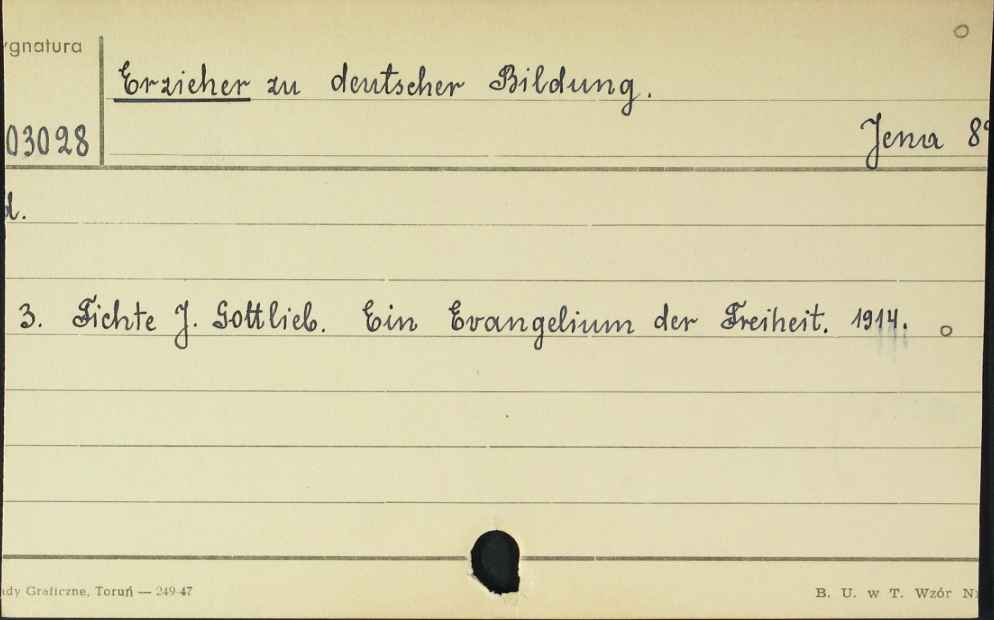 ygnatura
Erzieher zu deutscher Bildung.
03028
Jena 8°
d.
3. Fichte J. Gottlieb. Ein Evangelium der Freiheit. 1914.
ady Graficzne, Toruń — 249-47
B. U. w T. Wzór N